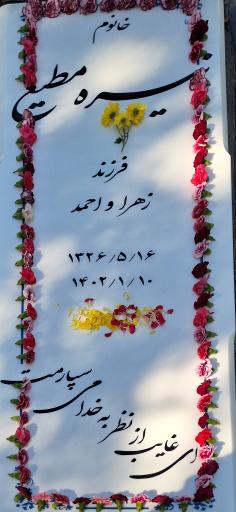 خانوم
سیره مطیع
فرزند
زهرا و احمد
۱۳۲۶/۵/۱۶
۱۴۰۲/۱/۱۰
ای غایب از نظر به خدا می سپارمت